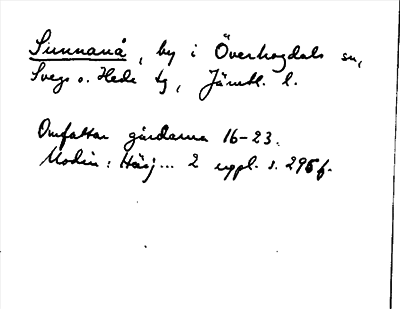 Sunnanå, by i Överhogdals sn,
Svegs o. Hede tg, Jämtl. l.
Omfattar gårdarna 16-23.
Modin: Härj... 2 uppl. s. 295f.